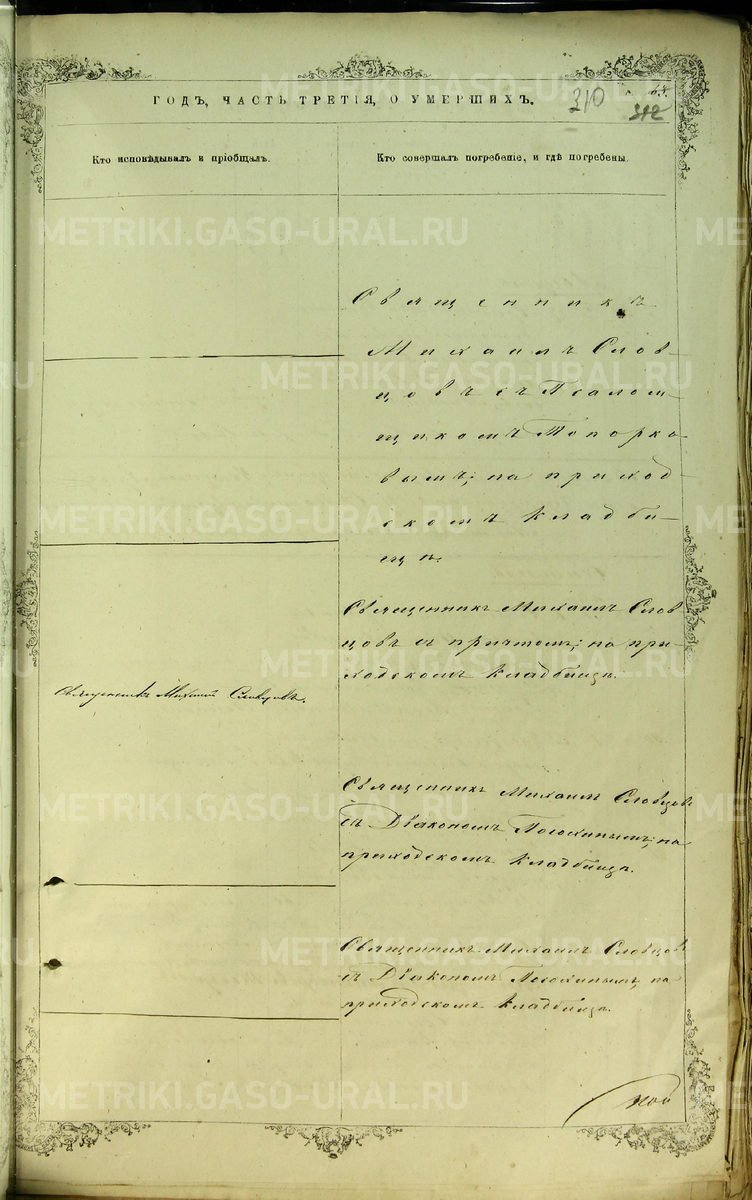 ГОДЪ, ЧАСТЬ ТРЕТІЯ, О УМЕРШИХЪ.
310
312
Кто исповѣдывалъ и пріобщалъ.
Кто совершалъ погребеніе, и гдѣ погребены.
METRIKI.GASO-URAL.RU
Священникъ
Михаилъ Слов-
цовъ съ Псалом-
щикомъ Топорко-
вымъ; на приход-
скомъ кладби-
щѣ.
Священникъ Михаилъ Слов
цовъ съ причтомъ; на при-
ходскомъ кладбищѣ.
Священникъ Михаилъ Словцовъ.
Священникъ Михаилъ Словцов
съ Діакономъ на
приходскомъ кладбищѣ.
Священникъ Михаилъ Словцов
съ Діакономъ на
приходскомъ кладбищѣ.